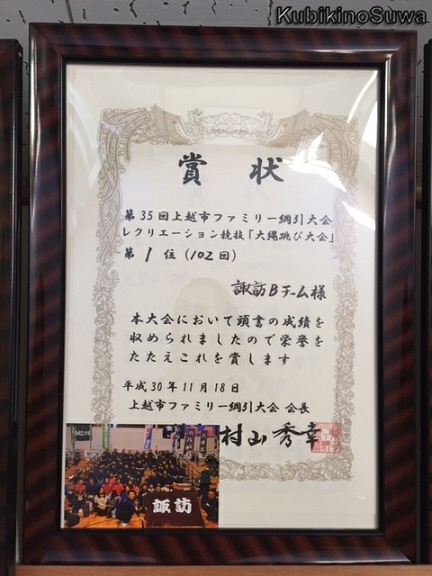 KubikinoSuwa
賞状
第35回上越市ファミリー綱引大会
レクリエーション競技「大縄跳び大会」
第1位(102回)
諏訪Bチーム様
本大会において頭書の成績を
収められましたので栄誉を
たたえこれを賞します
平成30年11月18日
上越市ファミリー綱引大会 会長
村山秀幸
諏訪